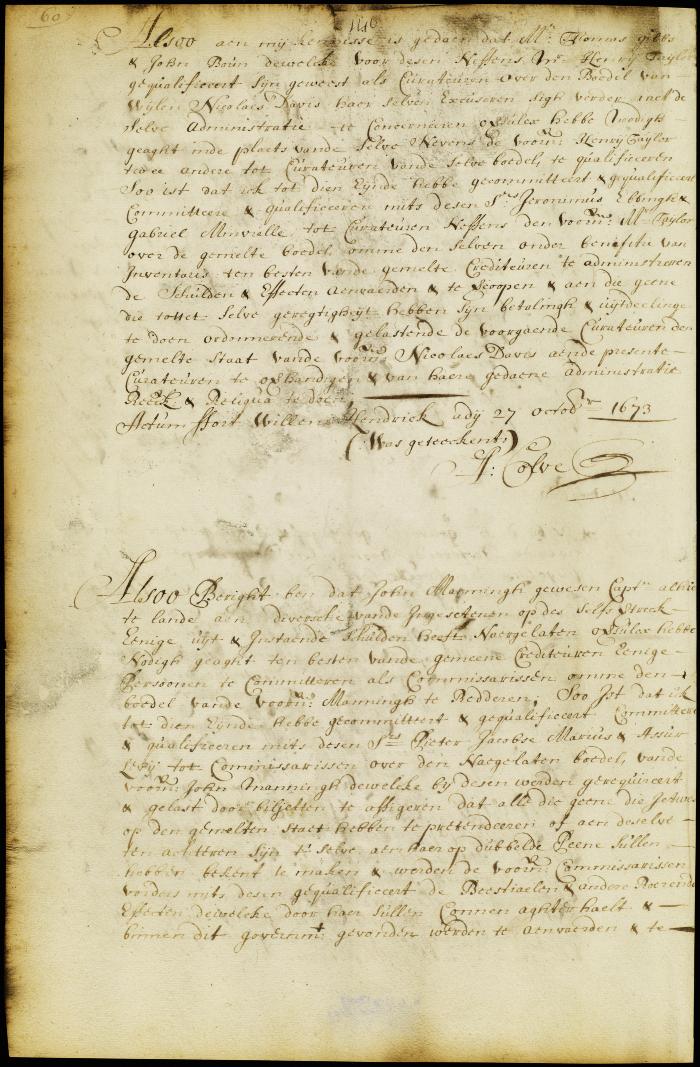 60
146
Alsoo aen mij kennisse is gedaen dat Mr. Thomas gibbs
& John Boun dewelcke voor desen Neffens Mr. Henrij Taylor
gequalificeert sijn geweest als Curateuren over den Boedel van
Wijlen Nicolaes Davis haer selven Excuseren sigh verder met de
selve administratie te Concerneren oversulcx hebbe Noodigh
geaght inde plaets vande selve Nevens de voorn: Henrij Taylor
twee andere tot Curateuren vande selve boedel, te qualificeren
Soo ist dat ick tot dien Eijnde hebbe gecommitteert & gequalificeert
Committeere & qualificeeren mits desen Srs Jeronimus Ebbingh &
gabriel Minvielle tot Curateuren Neffens den voorn: Mr. Taylor
over de gemelte boedel, omme den selven onder benefitie van
Inventaris ten besten vande gemelte Crediteuren te administreren
de Schulden & Effecten aenvaerden & te & aen die geene
die tottet selve geregtigheijt hebben sijn betalingh & uijtdeelinge
te doen ordonnerende & gelastende de voorgaende Curateuren den
gemelte Staet vande voorn: Nicolaes Davis aende presente
Curateuren te overhandigen & van haere gedaene administratie
& Reliqua te doen.
Actum ffort Willem Hendrick adij 27 octobr 1673
(:Was geteeckent:)
A: Colve
Alsoo Beright ben dat John Manningh gewesen Captn alhier
te lande aen deversche vande Ingesetenen op des selfs streck
Eenige uijt & Instaende schulden heeft Naergelaten oversulcx hebbe
Nodigh geaght ten besten vande gemeene Crediteuren Eenige
Persoonen te Committeren als Commissarissen omme den
boedel vande voorn: Manningh te Redderen, Soo Ist dat ick
tot dien Eijnde hebbe gecommitteert & gequalificeert Committere
& qualificeeren mits desen Srs Pieter Jacobse Marius & Assur
Levij tot Commissarissen over den Naegelaten boedel, vande
voorn: John Manningh dewelcke bij desen werden gerequireert
& gelast door biljetten te affigeren dat alle die geene die Ietwes
op den gemelten staet hebben te pretenderen of aen deselve
ten achteren sijn 't selve aen haer op dubbelde Peene sullen
hebben bekent te maken & werden de voorn: Commissarissen
vorders mits desen gequalificeert de Beestiaelen & andere Roerende
Effecten dewelcke door haer sullen Connen aghterhaelt &
binnen dit governmt gevonden werden te aenvaerden & te